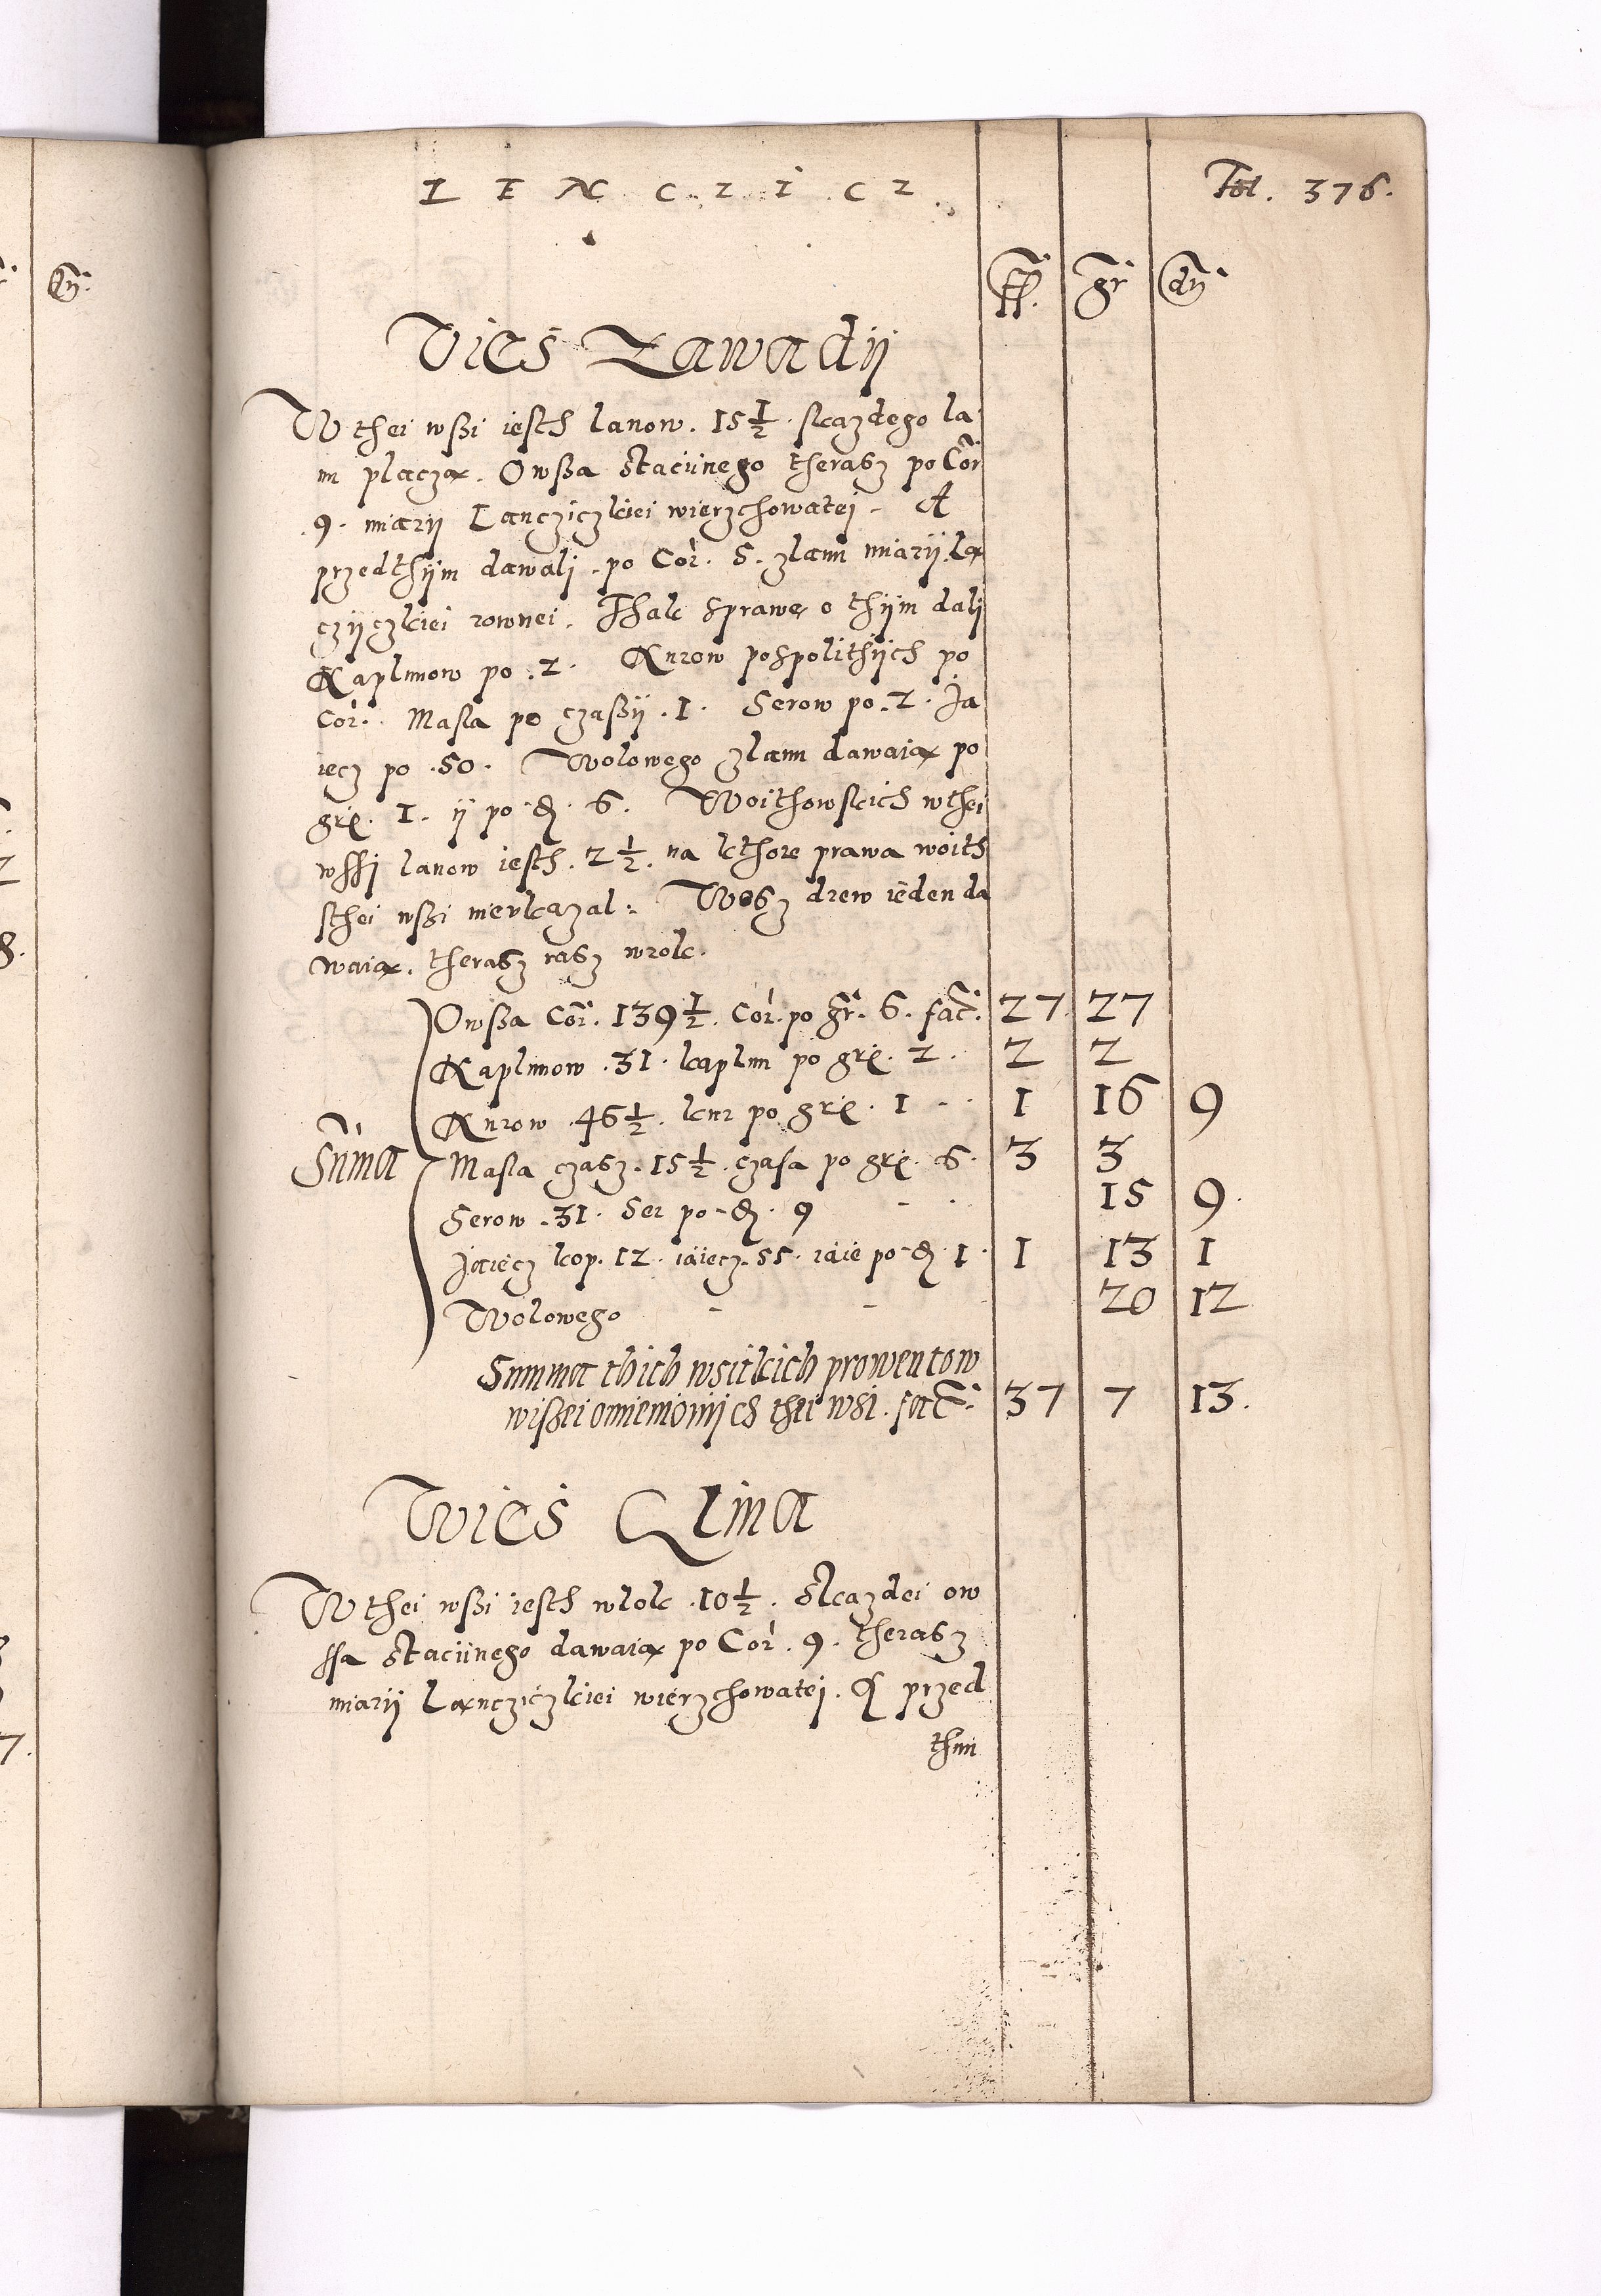 LENCZICZ. Fol. 376.
ff. gr dn
Vies Zawadij
W thei wßi iesth lanow. 15 1/2. skazdego la
nu placzą. Owßa staciinego therasz po Cor
9. miarij Lancziczkiei wierzchowatej. A
przedthijm dawalj. po Cor. 5. zlanu miarij. lą
czijczkiei rownei. Thak sprawę o thijm dalj
Kaplunow po. 2. Kurow pospolithijch po
Cor. Masla po czaßij. 1. Serow po. 2. Ja
iecz po. 50. Wolowego zlanu dawaią po
grz. 1. ij po d. 6. Woithowskich w thei
wssi lanow iesth. 2 1/2. na kthore prawa woith
sthei wßi nieukazal. Wosz drew ieden da
waią. therasz rasz wrok.
Owßa Cor. 139 1/2. Cor. po gr. 6. fac. 27 27
Kaplunow. 31. kaplun po grz. 2. 2 2
Kurow. 46 1/2. kur po grz. 1 - 1 16 9
Suma
Masla czasz. 15 1/2. czasa po grz. 6. 3 3
Serow. 31. Ser po d. 9 - 15 9.
Jaiecz kop. 12. iaiecz. 55. iaie po d. 1. 1 13 1
Wolowego - - 20 12
Summa thich wsitkich prowentow
wißei omienionijch thei wsi. fac. 37 7 13.
Wies Glina
W thei wßi iesth wlok. 10 1/2. Skazdei ow
ssa staciinego dawaią po Cor. 9. therasz
miarij Ląncziczkiei wierzchowatej. A przed
thim